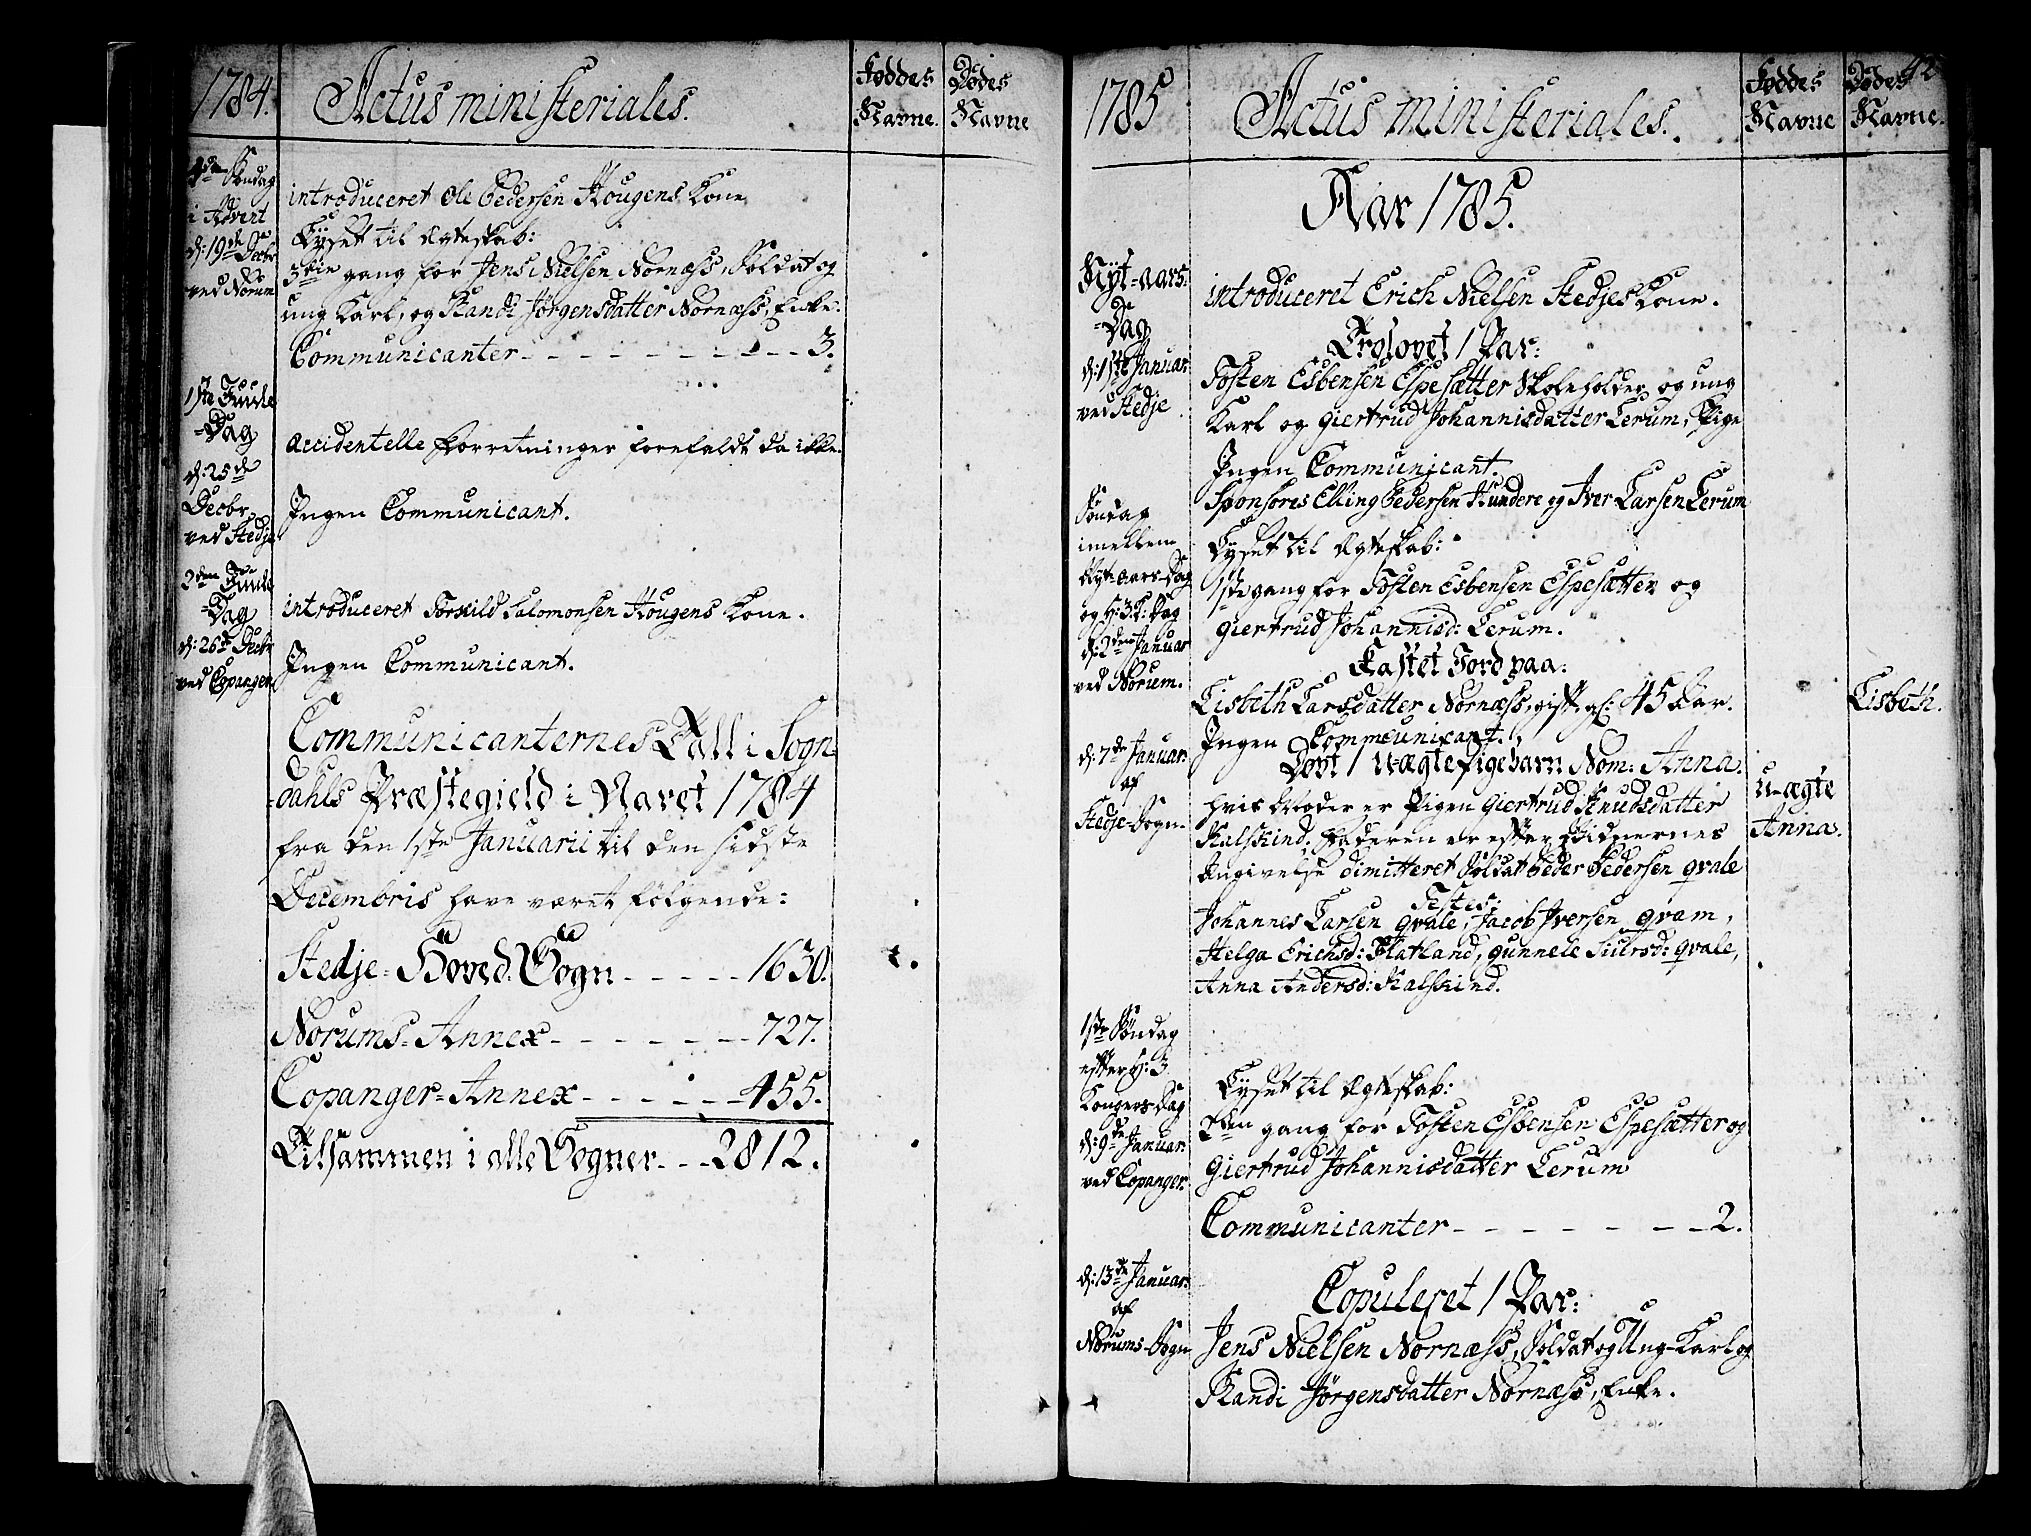 1784.
Actus ministeriales.
Føddes
Navne.
Dødes
Navne
4de Søndag
i Advent
d: 19de Decbr
ved Norum
introduceret Ole Pedersen Hougens Kone
Lyset til Ægteskab:
3die gang for Jens Nielsen Nornæss, Soldat og
ung Karl, og Randi Jørgensdatter Nornæss, Enke.
Communicanter - - - - - - - - 3.
1ste Juule
-Dag
d: 25de
Decbr
ved Stedje
accidentelle Forretninger forefaldt da ikke.
Ingen Communicant.
2den Juule
-Dag
d: 26de Decbr
ved Copanger
introduceret Torkild Salomonsen Hougens Kone.
Ingen Communicant.
Communicanternes Tall i Sogn-
-dahls Præstegield i Aaret 1784
fra den 1ste Januarii til den sidste
Decembris have været følgende:
Stedje-Hoved-Sogn - - - - - 1630.
Norums-Annex - - - - - - - 727.
Copanger-Annex - - - - - - 455.
Tilsammen i alle Sogner - - - 2812.
42
1785
Actus ministeriales.
Føddes
Navne
Dødes
Navne.
Aar 1785.
Nyt-aars-
-Dag
d: 1ste Januar
ved Stedje
introduceret Erich Nielsen Stedjes Kone.
Trolovet 1 Par:
Tosten Esbensen Espesætter Skoleholder og ung
Karl og Giertrud Johannisdatter Lerum, Pige
Ingen Communicant.
Sponsores Elling Pedersen Hundere og Iver Larsen Lerum
Søndag
imellem
Nyt-aars-Dag
og H: 3 K: Dag
d: 2den Januar
ved Norum.
Lyset til Ægteskab:
1ste gang for Tosten Esbensen Espesætter og
Giertrud Johannisd: Lerum.
Kastet Jord paa:
Lisbeth Larsdatter Nornæss, gift, gl: 45 Aar.
Lisbeth.
Ingen Communicant.
d: 7de Januar.
af
Stedje-Sogn.
Døbt 1 Uægte Pigebarn Nom: Anna.
hvis Moder er Pigen Giertrud Knudsdatter
Kalskind; Faderen er efter Vidnernes
Angivelse dimitteret Soldat Peder Pedersen Qvale
U-ægte
Anna.
Testes:
Johannes Larsen Qvale, Jacob Iversen Qvam,
Helga Erichsd: Flatland, Gunnele Siursd: Qvale,
Anna Andersd: Kalskind.
1ste Søndag
efter H: 3
Kongers Dag
d: 9de Januar.
ved Copanger
Lyset til Ægteskab:
2den gang for Tosten Esbensen Espesætter og
Giertrud Johannisdatter Lerum
Communicanter - - - - - - - 2.
d: 13de Januar.
af
Norums-Sogn
Copuleret 1 Par:
Jens Nielsen Nornæss, Soldat og Ung-Karl og
Randi Jørgensdatter Nornæss, Enke.